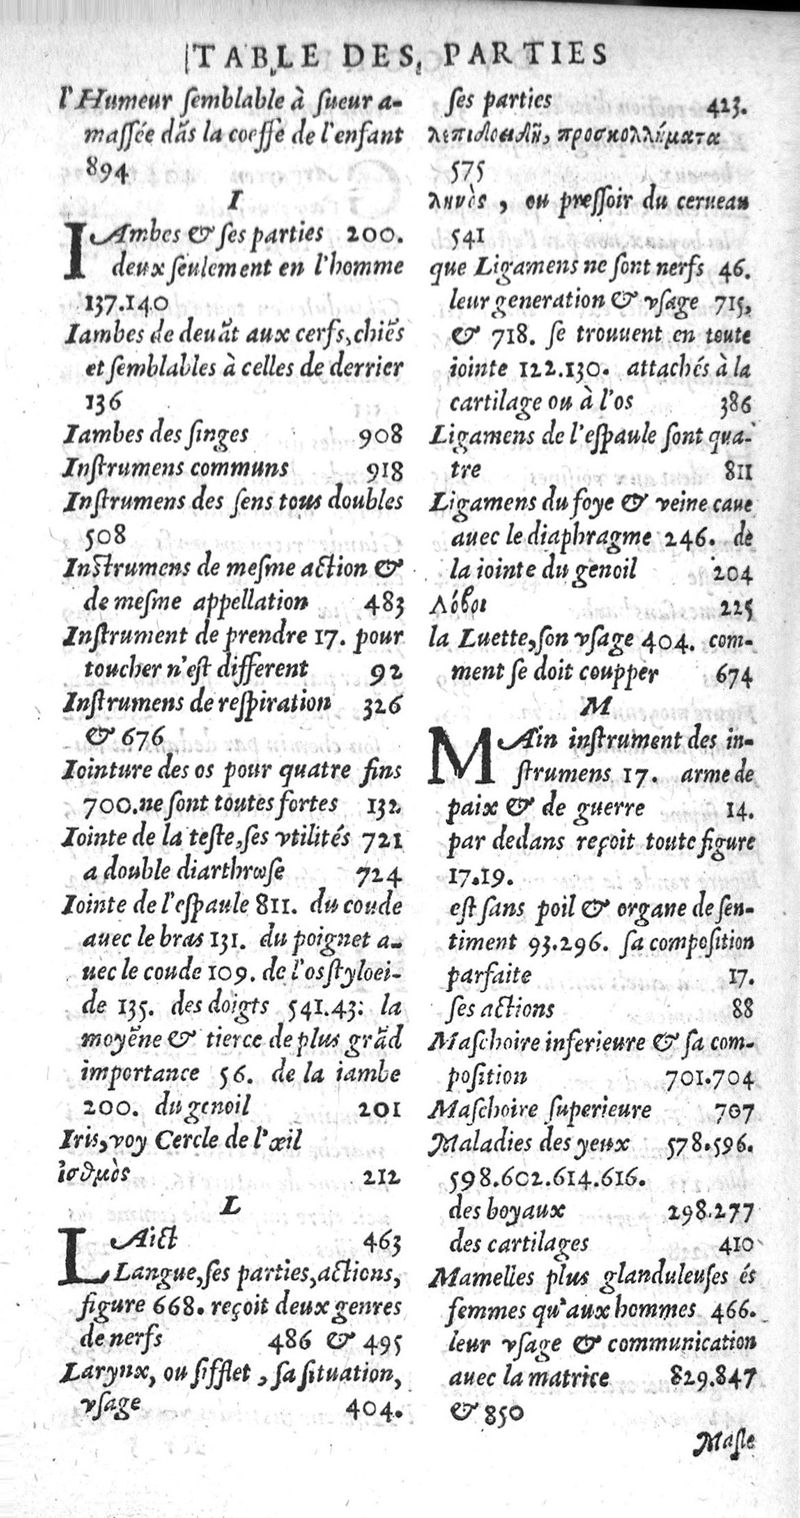 TABLE DES PARTIES
l'Humeur ſemblable à ſueur a-
maſſée dãs la coeffe de l'enfant
894
I
IAmbes & ſes parties 200.
deux ſeulement en l'homme
137.140
Iambes de deuãt aux cerfs, chiẽs
et ſemblables à celles de derrier
136
Iambes des ſinges 908
Inſtrumens communs 918
Inſtrumens des ſens tous doubles
508
Inſtrumens de meſme action &
de meſme appellation 483
Inſtrument de prendre 17. pour
toucher n'eſt different 92
Inſtrumens de reſpiration 326
& 676
Iointure des os pour quatre fins
700. ne ſont toutes fortes 132
Iointe de la teſte, ſes vtilités 721
a double diarthroſe 724
Iointe de l'eſpaule 811. du coude
auec le bras 131. du poignet a-
uec le coude 109. de l'os ſtyloei-
de 135. des doigts 541.43: la
moyẽne & tierce de plus grãd
importance 56. de la iambe
200. du genoil 201
Iris, voy Cercle de l'œil
ἰσθμὸς 212
L
LAict 463
Langue, ſes parties, actions,
figure 668. reçoit deux genres
de nerfs 486 & 495
Larynx, ou ſifflet, ſa ſituation,
vſage 404.
ſes parties 423.
λεπιδοειδῆ, προσκολλήματα
575
ληνὸς, ou preſſoir du cerueau
541
que Ligamens ne ſont nerfs 46.
leur generation & vſage 715,
& 718. ſe trouuent en toute
iointe 122.130. attachés à la
cartilage ou à l'os 386
Ligamens de l'eſpaule ſont qua-
tre 811
Ligamens du foye & veine caue
auec le diaphragme 246. de
la iointe du genoil 204
Λόβοι 225
la Luette, ſon vſage 404. com-
ment ſe doit coupper 674
M
MAin inſtrument des in-
ſtrumens 17. arme de
paix & de guerre 14.
par dedans reçoit toute figure
17.19.
eſt ſans poil & organe de ſen-
timent 93.296. ſa compoſition
parfaite 17.
ſes actions 88
Maſchoire inferieure & ſa com-
poſition 701.704
Maſchoire ſuperieure 707
Maladies des yeux 578.596.
598.602.614.616.
des boyaux 298.277
des cartilages 410
Mamelles plus glanduleuſes és
femmes qu'aux hommes 466.
leur vſage & communication
auec la matrice 829.847
& 850
Maſle